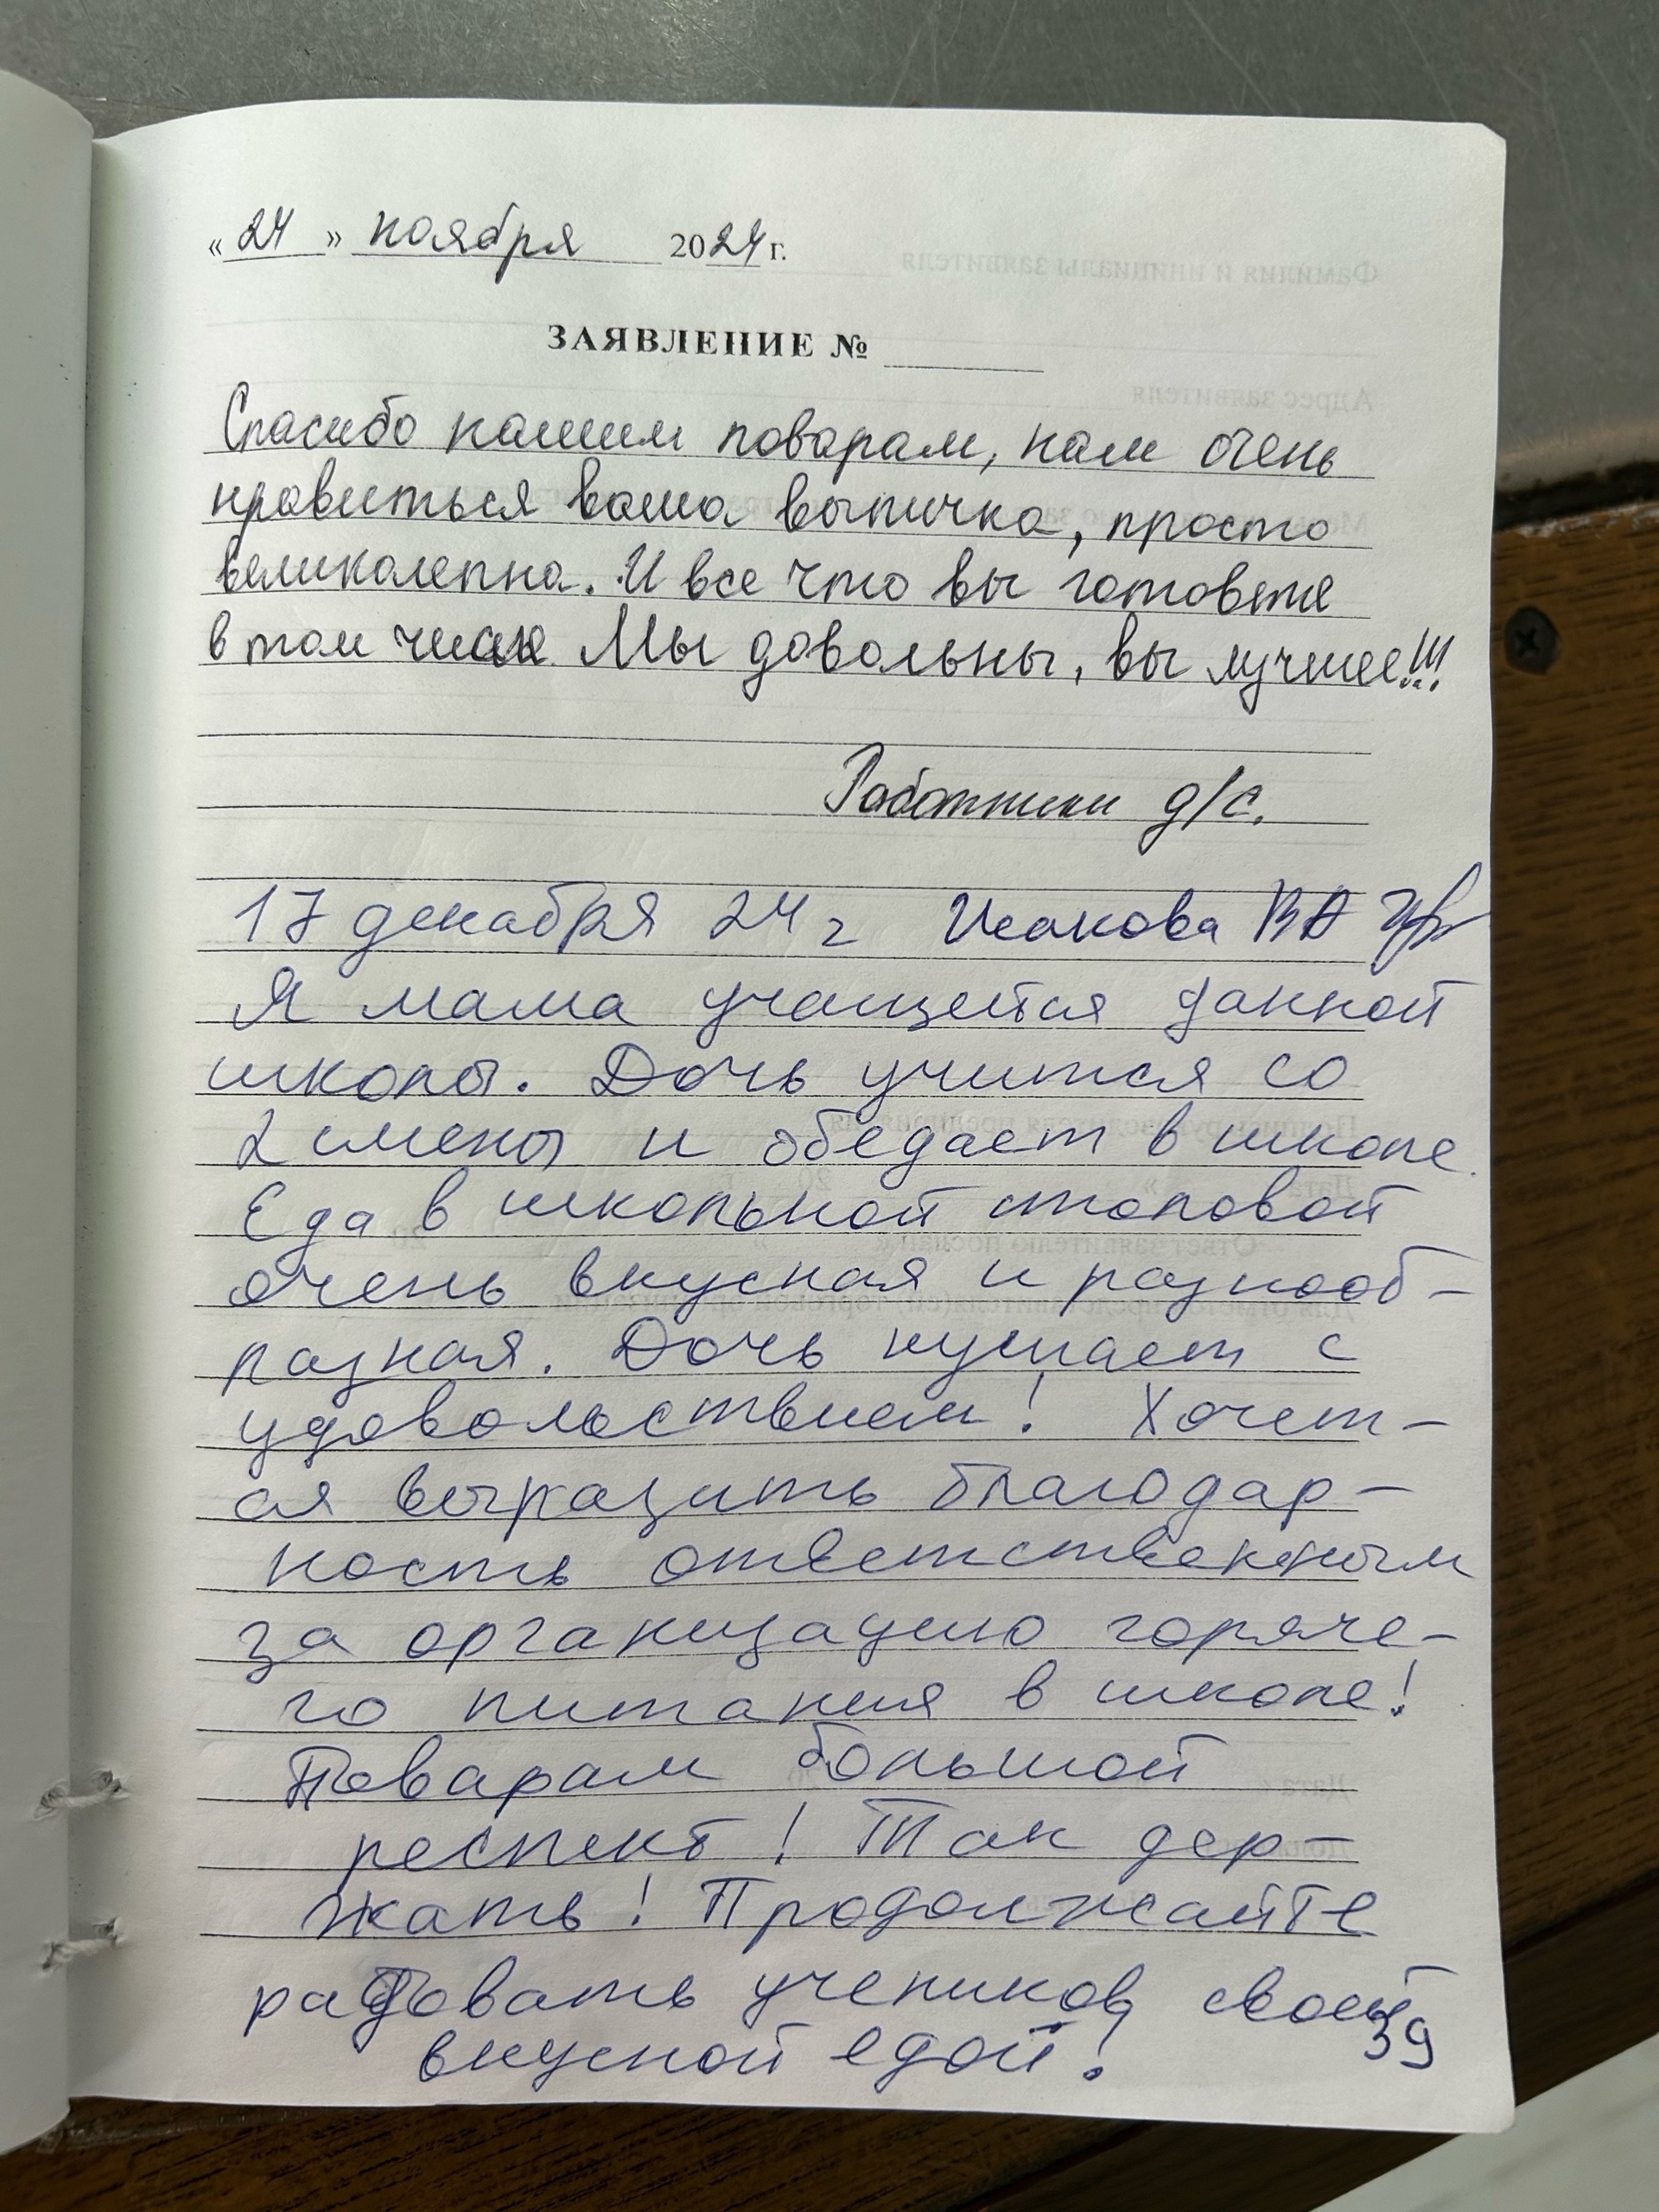 « 24 » ноября 2024 г.
ЗАЯВЛЕНИЕ №
Спасибо нашим поварам, нам очень
нравиться ваша выпичка, просто
великолепна. И все что вы готовете
в том числе Мы довольны, вы лучшее!!!
Работники д/с.
17 декабря 24 г Исакова ВА
Я мама учащейся данной
школы. Дочь учится со
2 смены и обедает в школе.
Еда в школьной столовой
очень вкусная и разнооб-
разная. Дочь кушает с
удовольствием! Хочет-
ся выразить благодар-
ность ответственным
за организацию горяче-
го питания в школе!
Поварам большой
респект! Так дер-
жать! Продолжайте
радовать учеников своей
вкусной едой!
39